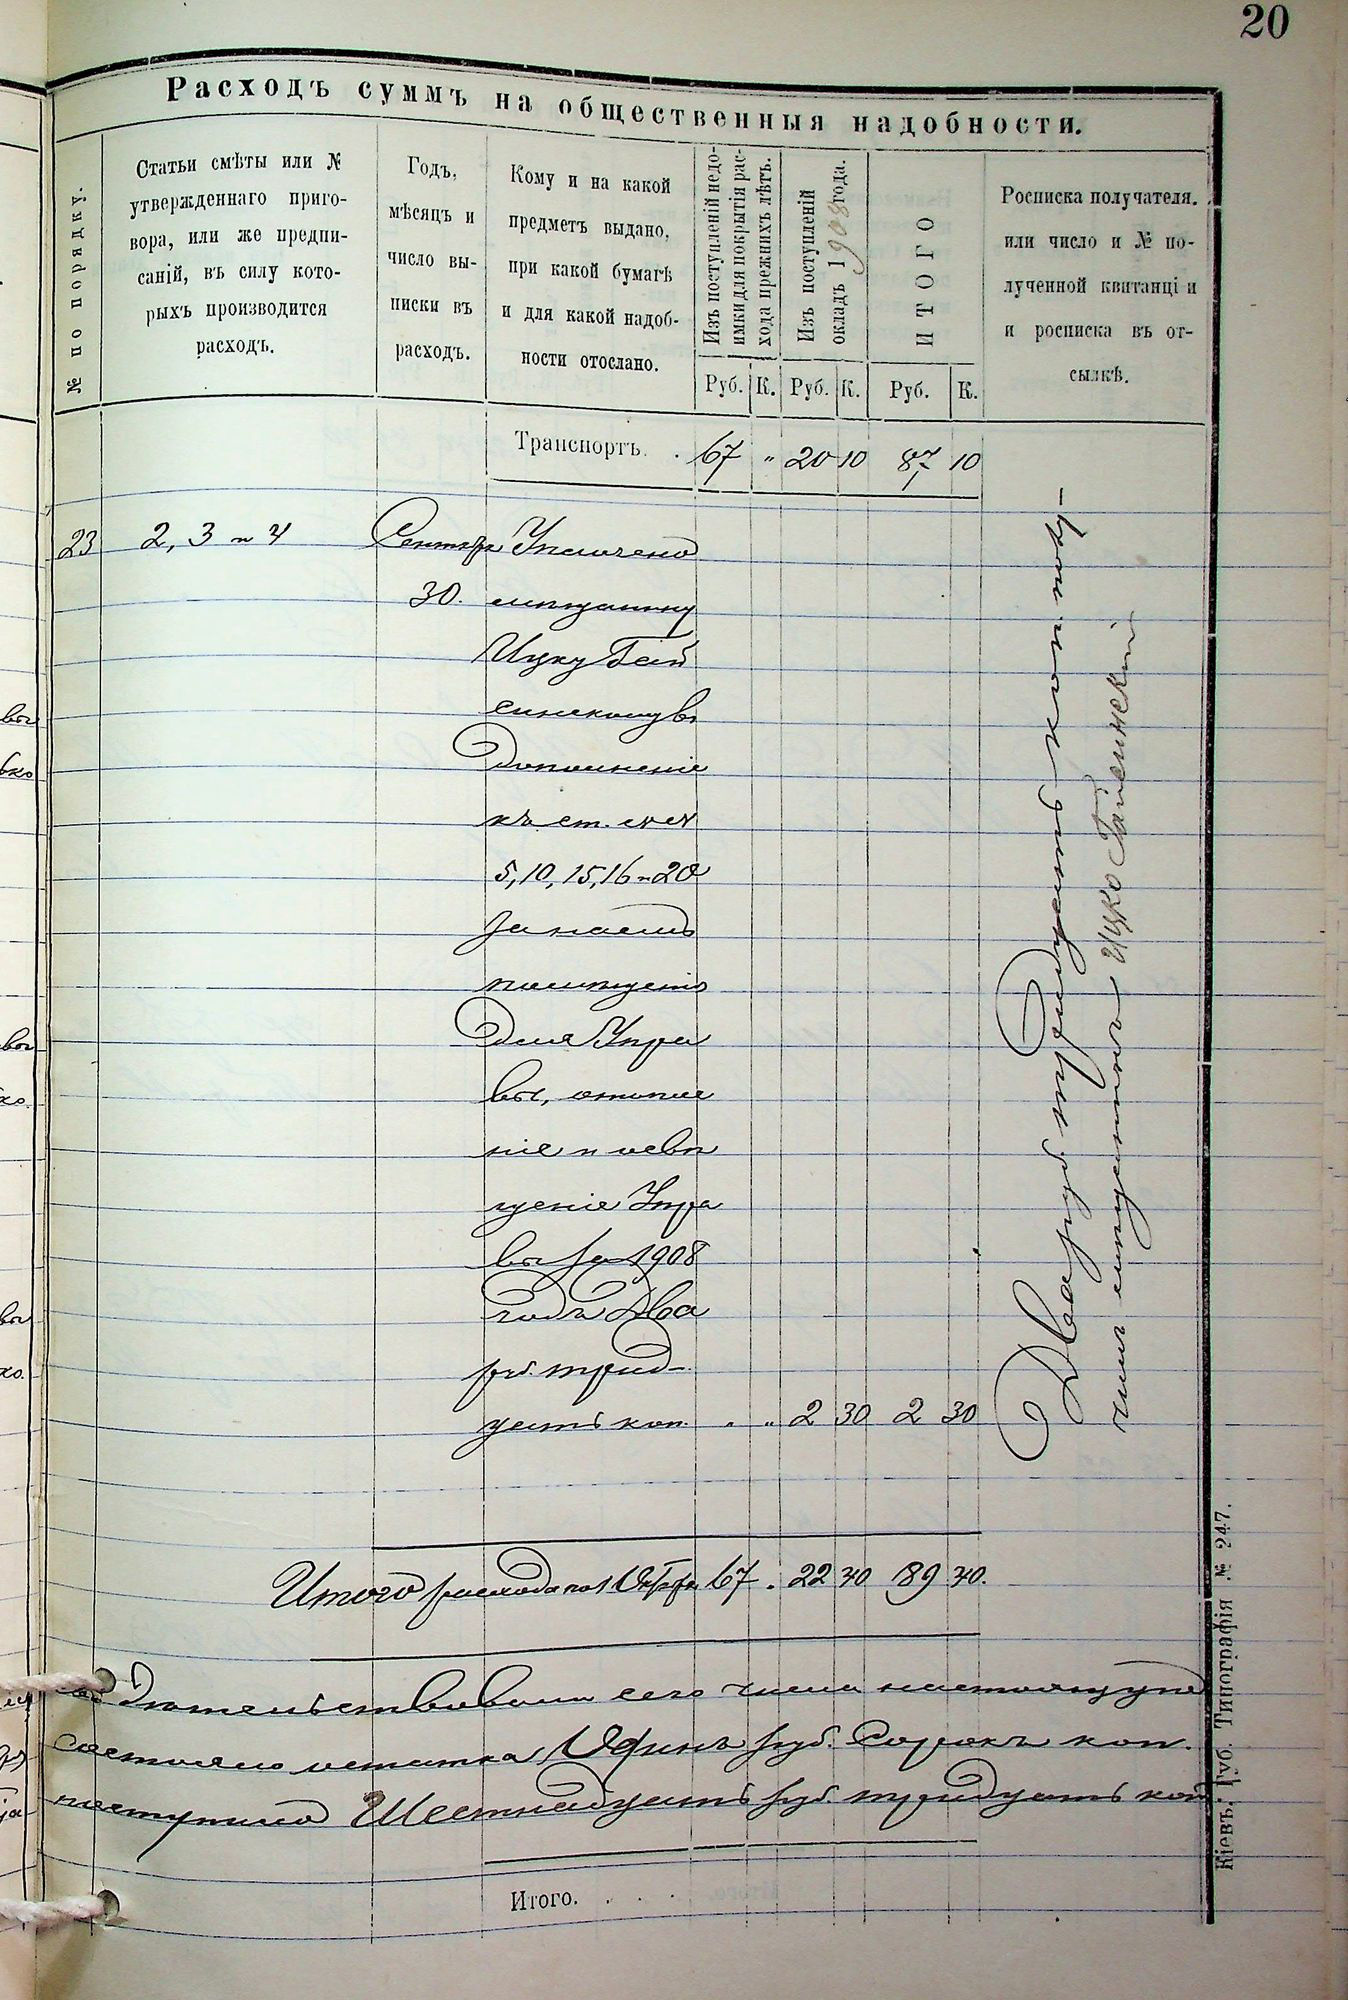 20
Расходъ суммъ на общественныя надобности.
№ по порядку.
Статьи смѣты или №
утвержденнаго приго-
вора, или же предпи-
саній, въ силу кото-
рыхъ производится
расходъ.
Годъ,
мѣсяцъ и
число вы-
писки въ
расходъ.
Кому и на какой
предметъ выдано,
при какой бумагѣ
и для какой надоб-
ности отослано.
Изъ поступленій недо-
имки для покрытія рас-
хода прежнихъ лѣтъ.
Изъ поступленій
окладъ 1908 года.
ИТОГО
Росписка получателя.
или число и № по-
лученной квитанціи
и росписка въ от-
сылкѣ.
Руб. К. Руб. К. Руб. К.
Транспортъ. . 67 „ 20 10 87 10
23 2, 3 и 4 Сентября Уплачено
30. мѣщанину
Ицку Гай
синскому въ
дополненіе
къ ст.
5, 10, 15, 16 и 20
за наемъ
помѣщенія
для Упра
вы, отопле
ніе и освѣ
щеніе Упра
вы за 1908
годъ Два
руб. трид-
цать коп. „ „ 2 30 2 30
Два руб. тридцать коп. полу-
чилъ мѣщанинъ Ицко Гайсинскій
Итого расхода по 1 Октября 67 „ 22 40 89 40.
состояло остатка Одинъ руб. Сорокъ коп.
поступило Шестнадцать руб. тридцать коп
Итого. . . . .
Кіевъ. Губ. Типографія № 247.